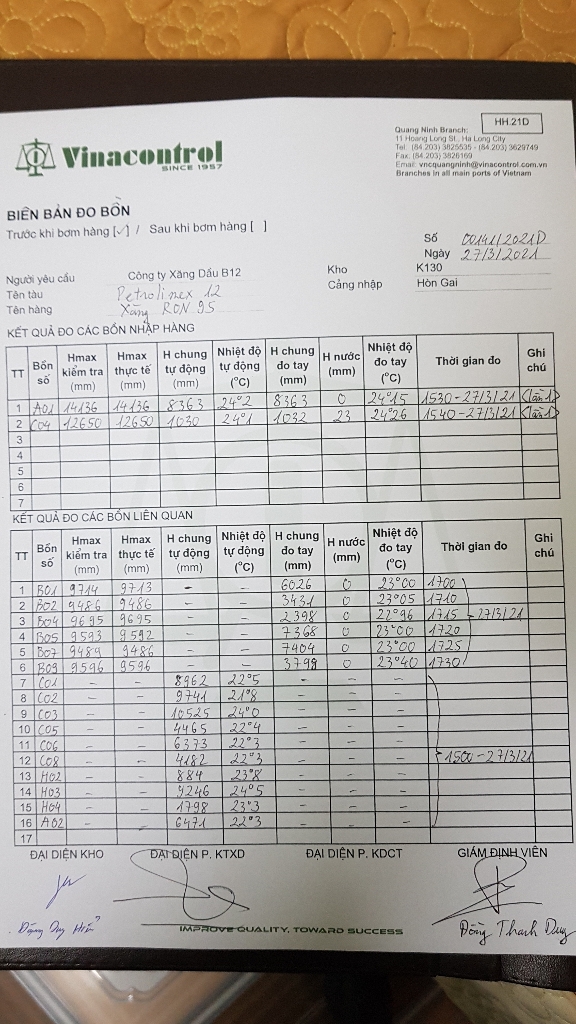 HH.21D
Vinacontrol
SINCE 1957
Quang Ninh Branch:
11 Hoang Long St., Ha Long City
Tel: (84.203) 3825535 - (84.203) 3629749
Fax: (84.203) 3826169
Email: vncquangninh@vinacontrol.com.vn
Branches in all main ports of Vietnam
BIÊN BẢN ĐO BỒN
Trước khi bơm hàng [✓] / Sau khi bơm hàng [ ]
Số 00141/2021D
Ngày 27/3/2021
Người yêu cầu Công ty Xăng Dầu B12 Kho K130
Tên tàu Petrolimex 12 Cảng nhập Hòn Gai
Tên hàng Xăng RON 95
KẾT QUẢ ĐO CÁC BỒN NHẬP HÀNG
TT Bồn số Hmax kiểm tra (mm) Hmax thực tế (mm) H chung tự động (mm) Nhiệt độ tự động (°C) H chung đo tay (mm) H nước (mm) Nhiệt độ đo tay (°C) Thời gian đo Ghi chú
1 A01 14136 14136 8363 24°2 8363 0 24°15 1530-27/3/21 (lần 1)
2 C04 12650 12650 1030 24°1 1032 23 24°26 1540-27/3/21 (lần 1)
3
4
5
6
7
KẾT QUẢ ĐO CÁC BỒN LIÊN QUAN
TT Bồn số Hmax kiểm tra (mm) Hmax thực tế (mm) H chung tự động (mm) Nhiệt độ tự động (°C) H chung đo tay (mm) H nước (mm) Nhiệt độ đo tay (°C) Thời gian đo Ghi chú
1 B01 9714 9713 - - 6026 0 23°00 1700
2 B02 9486 9486 - - 3431 0 23°05 1710
3 B04 9695 9695 - - 2398 0 22°96 1715 - 27/3/21
4 B05 9593 9592 - - 7368 0 23°00 1720
5 B07 9489 9486 - - 7404 0 23°00 1725
6 B09 9596 9596 - - 3798 0 23°40 1730
7 C01 - - 8962 22°5 - - -
8 C02 - - 9741 21°8 - - -
9 C03 - - 10525 24°0 - - -
10 C05 - - 4465 22°4 - - -
11 C06 - - 6373 22°3 - - -
12 C08 - - 4182 22°3 - - - 1500-27/3/21
13 H02 - - 884 23°8 - - -
14 H03 - - 9246 24°5 - - -
15 H04 - - 1798 23°3 - - -
16 A02 - - 6471 22°3 - - -
17
ĐẠI DIỆN KHO ĐẠI DIỆN P. KTXD ĐẠI DIỆN P. KDCT GIÁM ĐỊNH VIÊN
Đặng Duy Hiển Đồng Thanh Duy
IMPROVE QUALITY, TOWARD SUCCESS